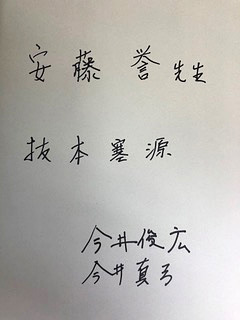 安藤 誉 先生
抜本塞源
今井俊広
今井真弓